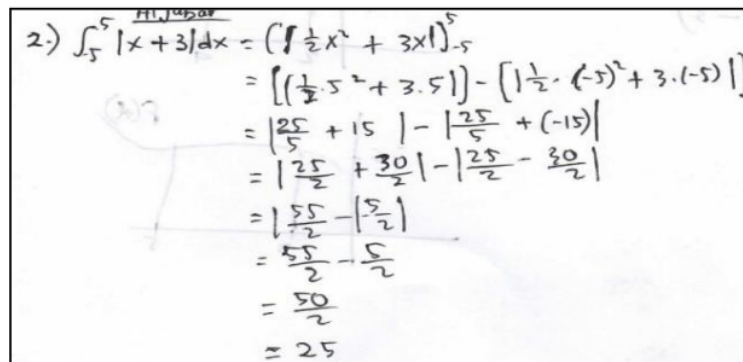 2.) ∫₋₅⁵ |x + 3|dx = (|½x² + 3x|)⁵₋₅
= [(½.5² + 3.5|] - [|½.(-5)² + 3.(-5)|]
= |25/5 + 15| - |25/5 + (-15)|
= |25/2 + 30/2| - |25/2 - 30/2|
= |55/2 - |5/2|
= 55/2 - 5/2
= 50/2
= 25